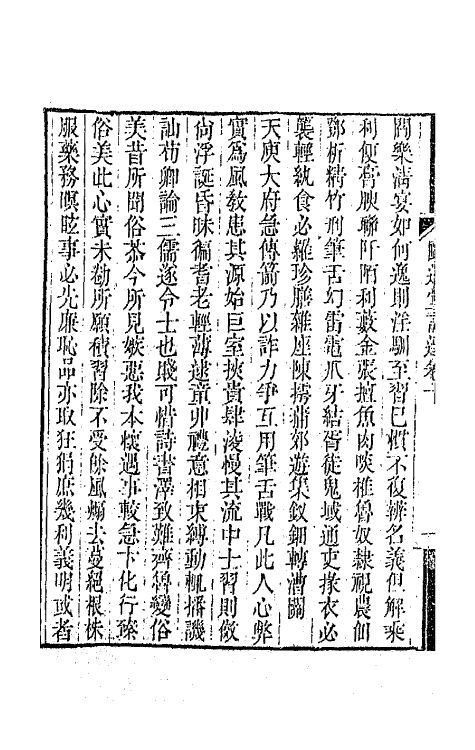 間樂清宴如何逸則淫馴至習已慣不復辨名義但解乘
利便膏腴聯阡陌利藪金張擅魚肉啖椎魯奴隸視農佃
鄧析精竹刑筆舌幻雷電爪牙結胥徒鬼蜮通吏掾衣必
襲輕紈食必羅珍膳雜座陳摴蒲郊遊集釵鈿轉漕關
天庾大府急傳箭乃以詐力爭互用筆舌戰凡此人心弊
實為風教患其源始巨室挾貴肆凌慢其流中士習則傚
尚浮誕昏昧徧耆老輕薄逮童丱禮意相束縛動輒播譏
訕荀卿論三儒逐令士也賤可惜詩書澤致難齊魯變俗
美昔所聞俗恭今所見嫉惡我本懷遇事較急卞化行臻
俗美此心實未勌所願積習除不受餘風煽去蔓絕根株
服藥務瞑眩事必先廉恥品亦取狂狷庶幾利義明或者